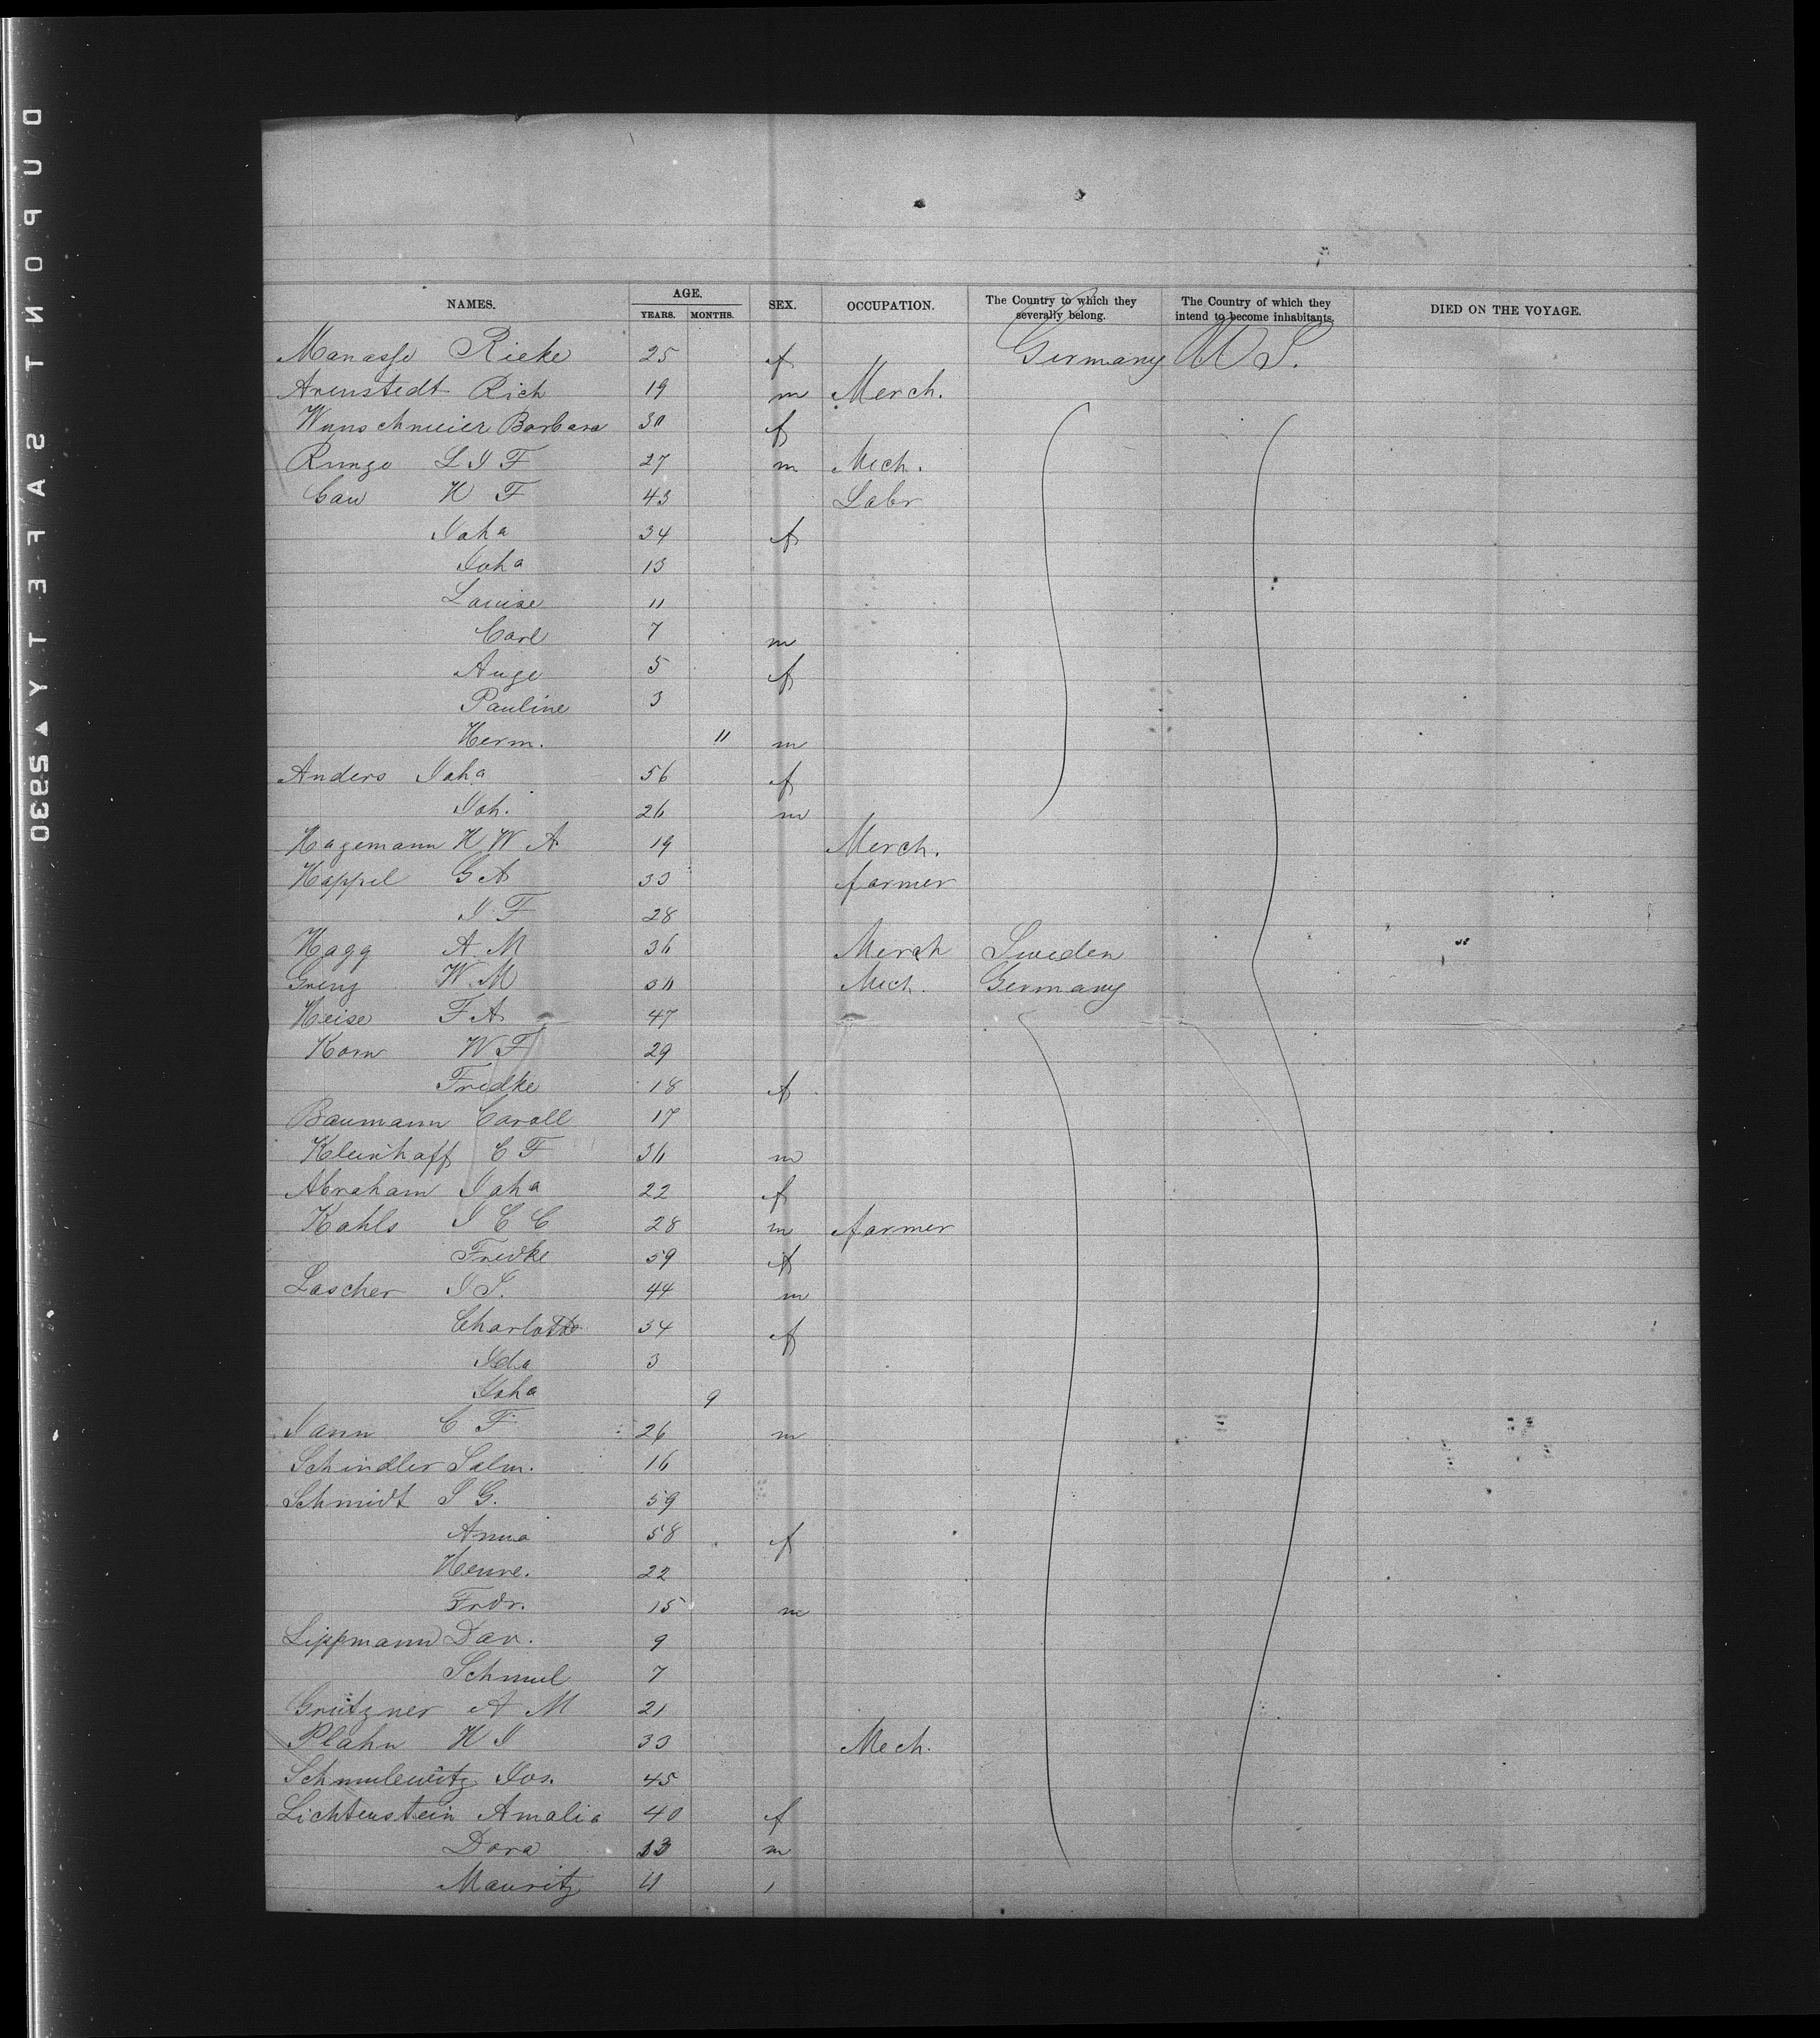 NAMES. AGE. YEARS. MONTHS. SEX. OCCUPATION. The Country to which they severally belong. The Country of which they intend to become inhabitants. DIED ON THE VOYAGE.
Manasse Rieke 25 f Germany U S.
Arenstedt Rich 19 m Merch.
Wunschmeier Barbara 30 f
Runge L I F 27 m Mech.
Cau H F 43 Labr
Joha 34 f
Joha 13
Louise 11
Carl 7 m
Auge 5 f
Pauline 3
Herm. 11 m
Anders Joha 56 f
Joh. 26 m
Hagemann H W A 19 Merch.
Happel G A 33 farmer
I F 28
Hagg A M 36 Merch Sweden
W M Mech. Germany
Heise F A 47
Korn W F 29
Fredke 18 f
Baumann Caroll 17
Kleinhoff C F 36 m
Abraham Joha 22 f
Kahls I C C 28 m farmer
Fredke 59 f
Lascher I S. 44 m
Charlotte 34 f
Ida 3
Joha 9
Jann C F 26 m
Schindler Salm. 16
Schmidt S G. 59
Anna 58 f
Henre. 22
Frdr. 15 m
Lippmann Dav. 9
Schmul 7
Grützner A M 21
Plahn H I 33 Mech.
Schmulewitz Jos. 45
Lichtenstein Amalia 40 f
Dora 13 m
Mauritz 11
DUPONT SAFETY ▲ 52930